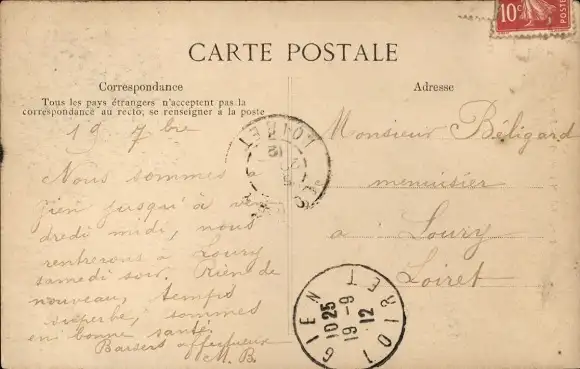 10c
POSTES
CARTE POSTALE
Correspondance
Tous les pays étrangers n'acceptent pas la
correspondance au recto; se renseigner à la poste
19 7bre
Nous sommes à
Gien jusqu'à ven
dredi midi, nous
rentrerons à Loury
samedi soir. Rien de
nouveau, temps
superbe, sommes
en bonne santé.
Baisers affectueux
M. B.
Adresse
Monsieur Béligard
menuisier
a Loury
Loiret
LOIRET
12
GIEN
10 25
19 -9
12
LOIRET